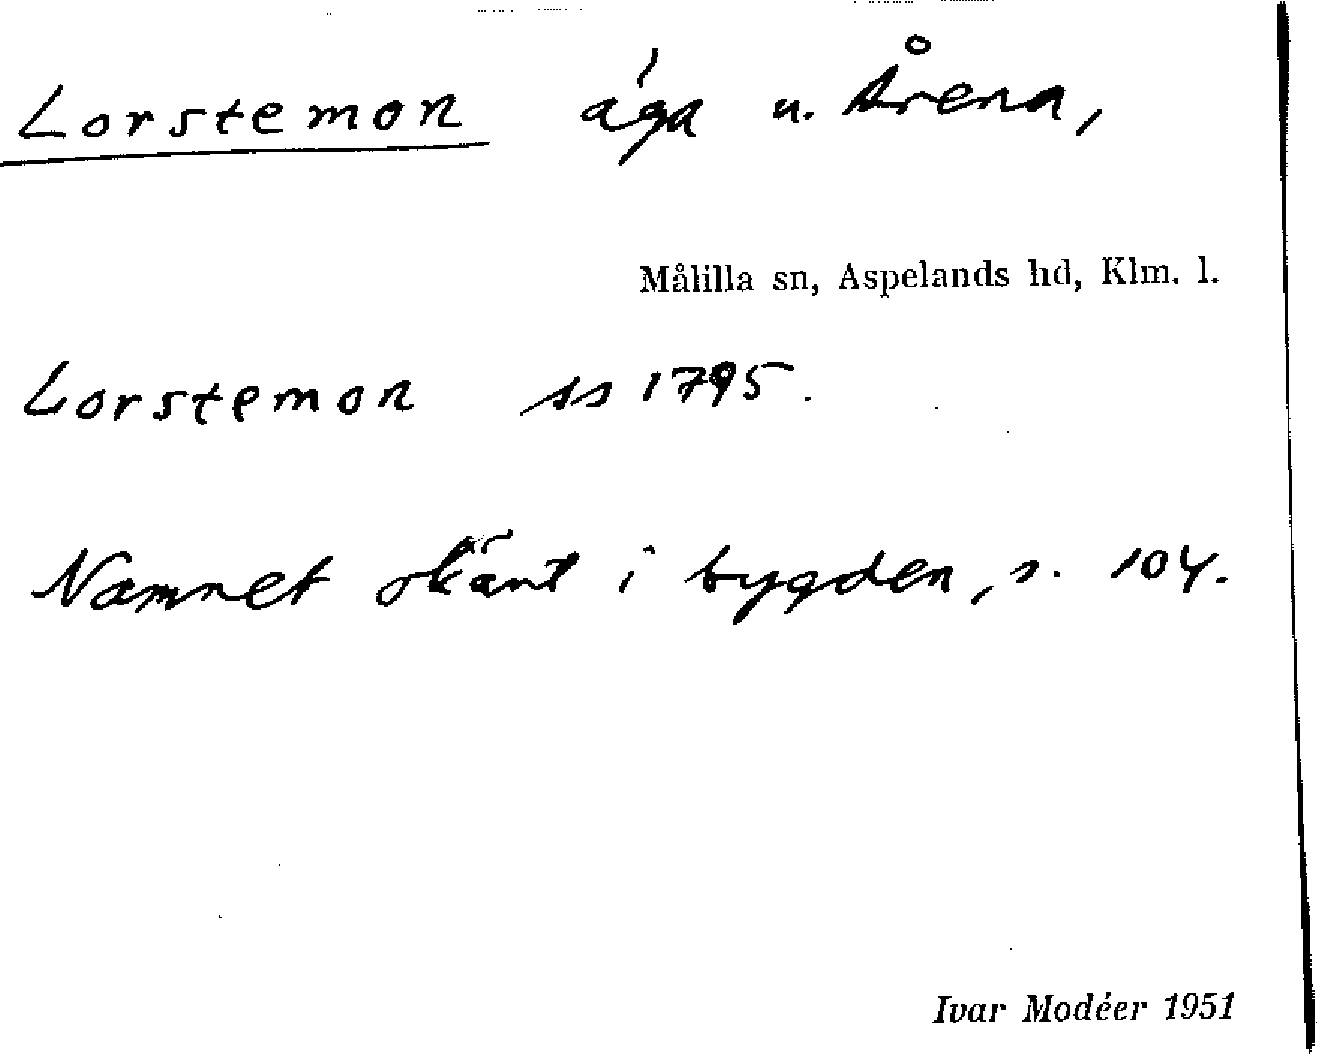 Lorstemon äga u. Årena,
Målilla sn, Aspelands hd, Klm. l.
Lorstemon ss 1795.
Namnet okänt i bygden, s. 104.
Ivar Modéer 1951